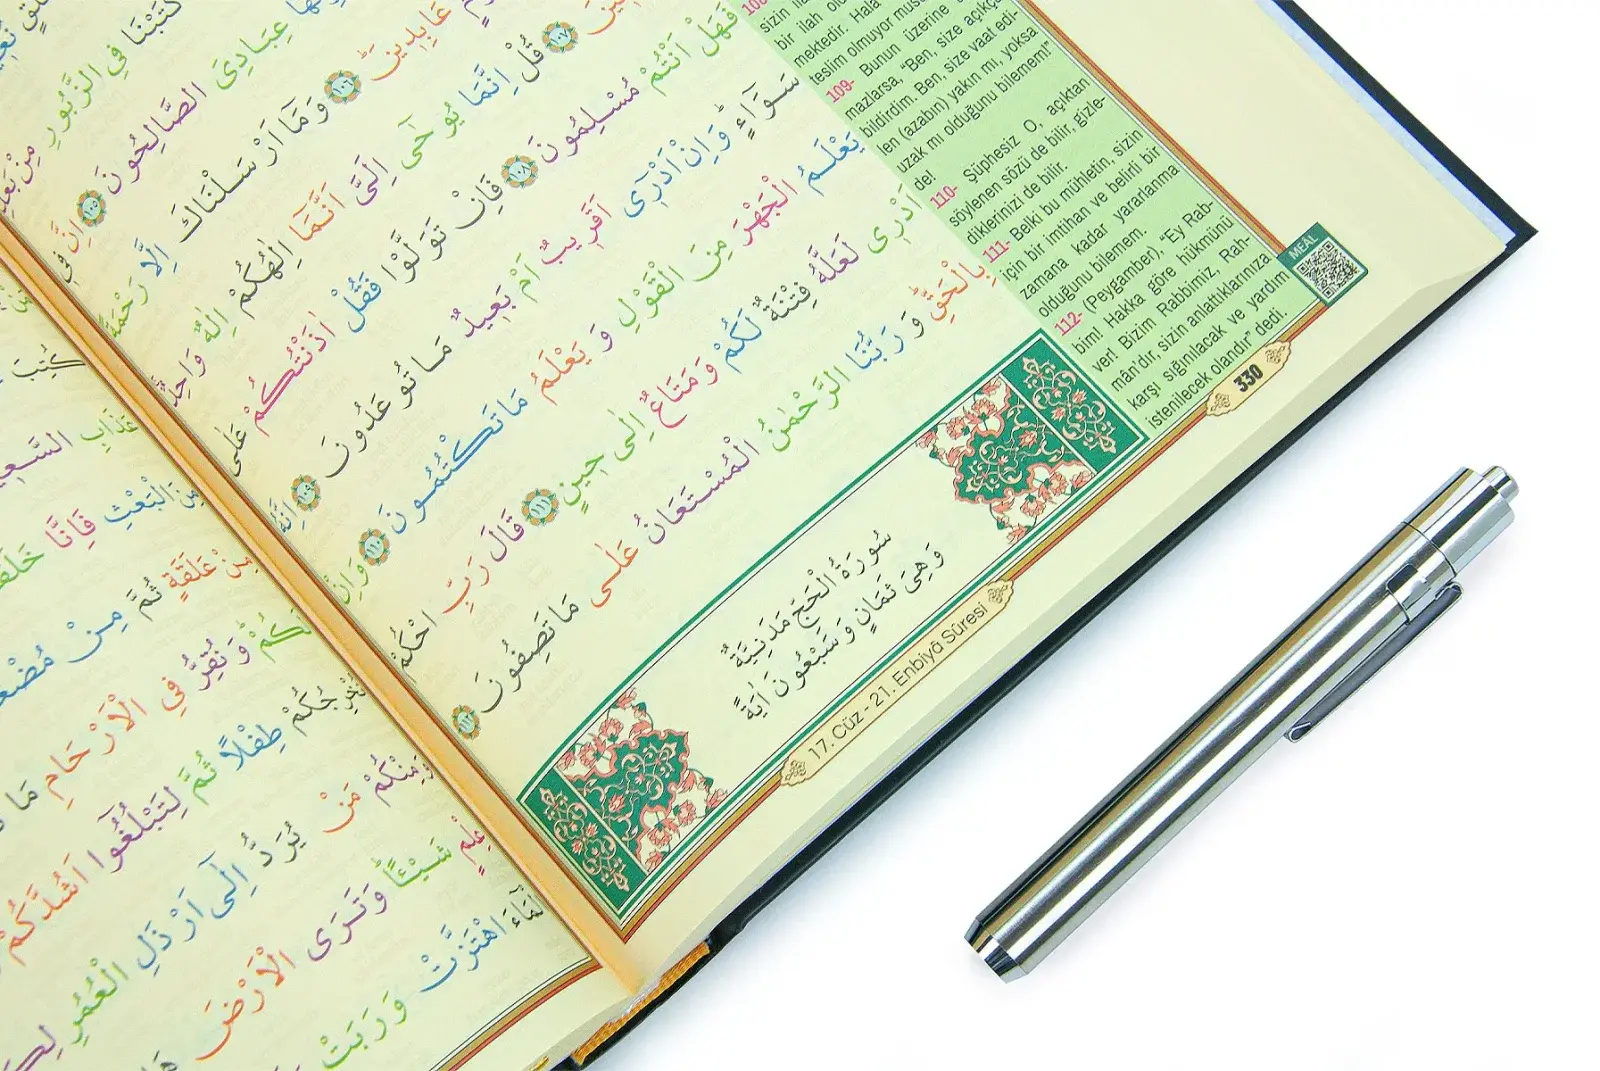 كَتَبْنَا فِي الزَّبُورِ مِنْ بَعْدِ
عِبَادِيَ الصَّالِحُونَ ﴿١٠٥﴾ اِنَّ فِي
عَابِدِينَۜ ﴿١٠٦﴾ وَمَٓا اَرْسَلْنَاكَ اِلَّا رَحْمَةً
﴿١٠٧﴾ قُلْ اِنَّمَا يُوحٰٓى اِلَيَّ اَنَّمَٓا اِلٰهُكُمْ اِلٰهٌ وَاحِدٌۚ
فَهَلْ اَنْتُمْ مُسْلِمُونَ ﴿١٠٨﴾ فَاِنْ تَوَلَّوْا فَقُلْ اٰذَنْتُكُمْ عَلٰى
سَوَٓاءٍۜ وَاِنْ اَدْرٓي اَقَرِيبٌ اَمْ بَعِيدٌ مَا تُوعَدُونَ ﴿١٠٩﴾ اِنَّهُ
يَعْلَمُ الْجَهْرَ مِنَ الْقَوْلِ وَيَعْلَمُ مَا تَكْتُمُونَ ﴿١١٠﴾ وَاِنْ
اَدْرٓي لَعَلَّهُ فِتْنَةٌ لَكُمْ وَمَتَاعٌ اِلٰى حِينٍ ﴿١١١﴾ قَالَ رَبِّ احْكُمْ
بِالْحَقِّۜ وَرَبُّنَا الرَّحْمٰنُ الْمُسْتَعَانُ عَلٰى مَا تَصِفُونَ ﴿١١٢﴾
سُورَةُ الْحَجِّ مَدَنِيَّةٌ
وَهِيَ ثَمَانٍ وَسَبْعُونَ اٰيَةً
17. Cüz - 21. Enbiyâ Sûresi
bir ilah
mektedir.
teslim olmuyor
109- Bunun üzerine
mazlarsa, "Ben, size açıkça
bildirdim. Ben, size vaat edi-
len (azabın) yakın mı, yoksa
uzak mı olduğunu bilemem!"
de!
110- Şüphesiz O, açıktan
söylenen sözü de bilir, gizle-
diklerinizi de bilir.
111- Belki bu mühletin, sizin
için bir imtihan ve belirli bir
zamana kadar yararlanma
olduğunu bilemem.
112- (Peygamber), "Ey Rab-
bim! Hakka göre hükmünü
ver! Bizim Rabbimiz, Rah-
mân'dır, sizin anlattıklarınıza
karşı sığınılacak ve yardım
istenilecek olandır" dedi.
330
MEAL
عَذَابِ السَّعِيرِ
مِنَ الْبَعْثِ فَاِنَّا
مِنْ عَلَقَةٍ ثُمَّ مِنْ
لَكُمْۜ وَنُقِرُّ فِي الْاَرْحَامِ مَا
نُخْرِجُكُمْ طِفْلاً ثُمَّ لِتَبْلُغُٓوا اَشُدَّكُمْۚ
وَمِنْكُمْ مَنْ يُرَدُّ اِلٰٓى اَرْذَلِ الْعُمُرِ
عِلْمٍ شَيْـًٔاۜ وَتَرَى الْاَرْضَ
الْمَٓاءَ اهْتَزَّتْ وَرَبَتْ